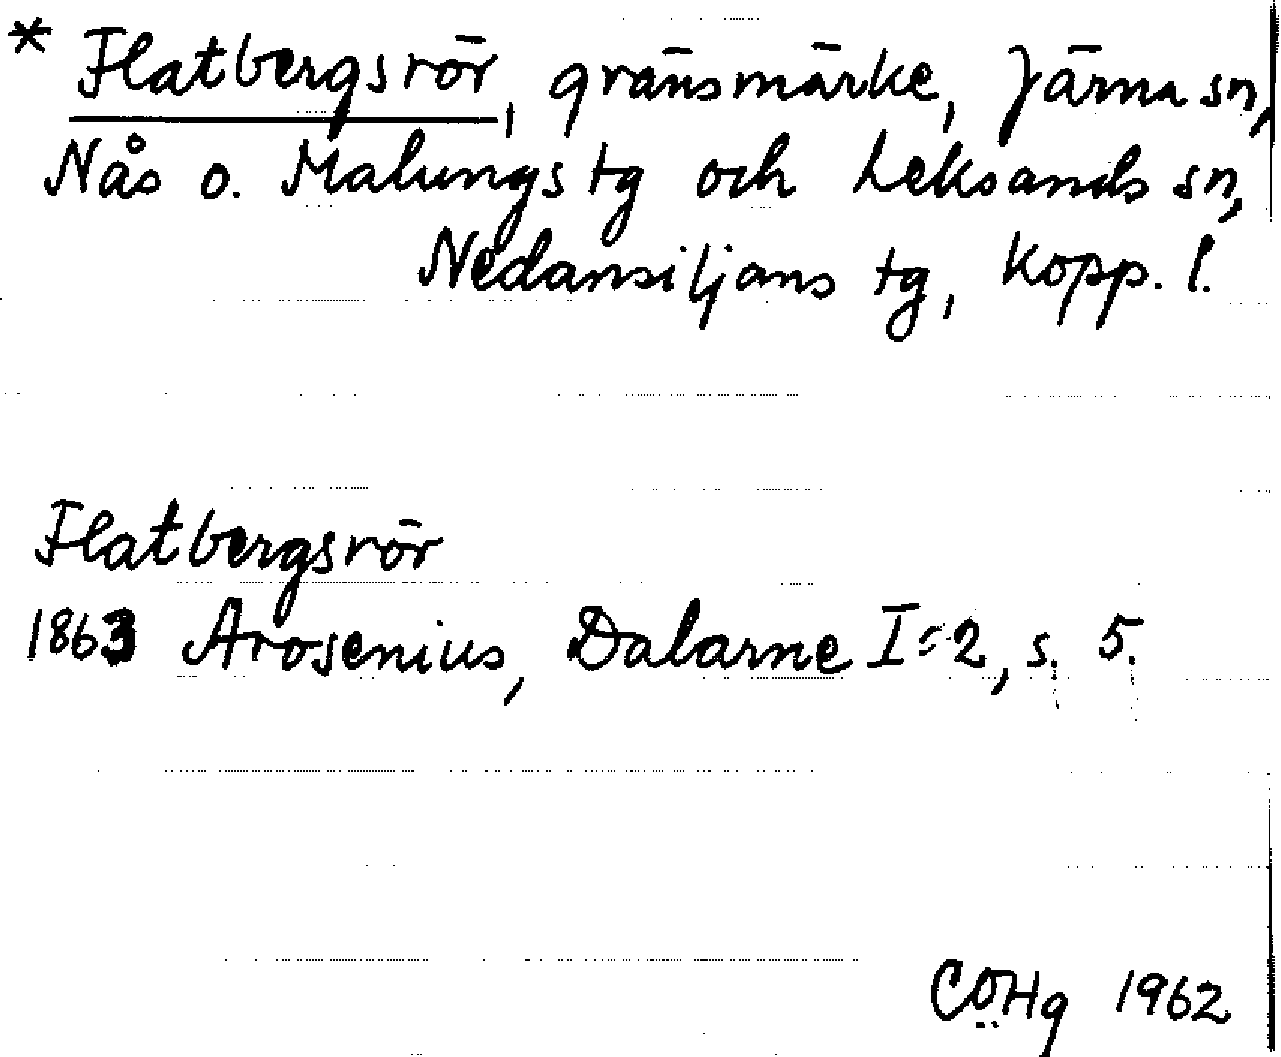 * Flatbergsrör, gränsmärke, Järna sn,
Nås o. Malungs tg och Leksands sn,
Nedansiljans tg, Kopp. l.
Flatbergsrör
1863 Arosenius, Dalarne I:2, s. 5.
CÖHg 1962